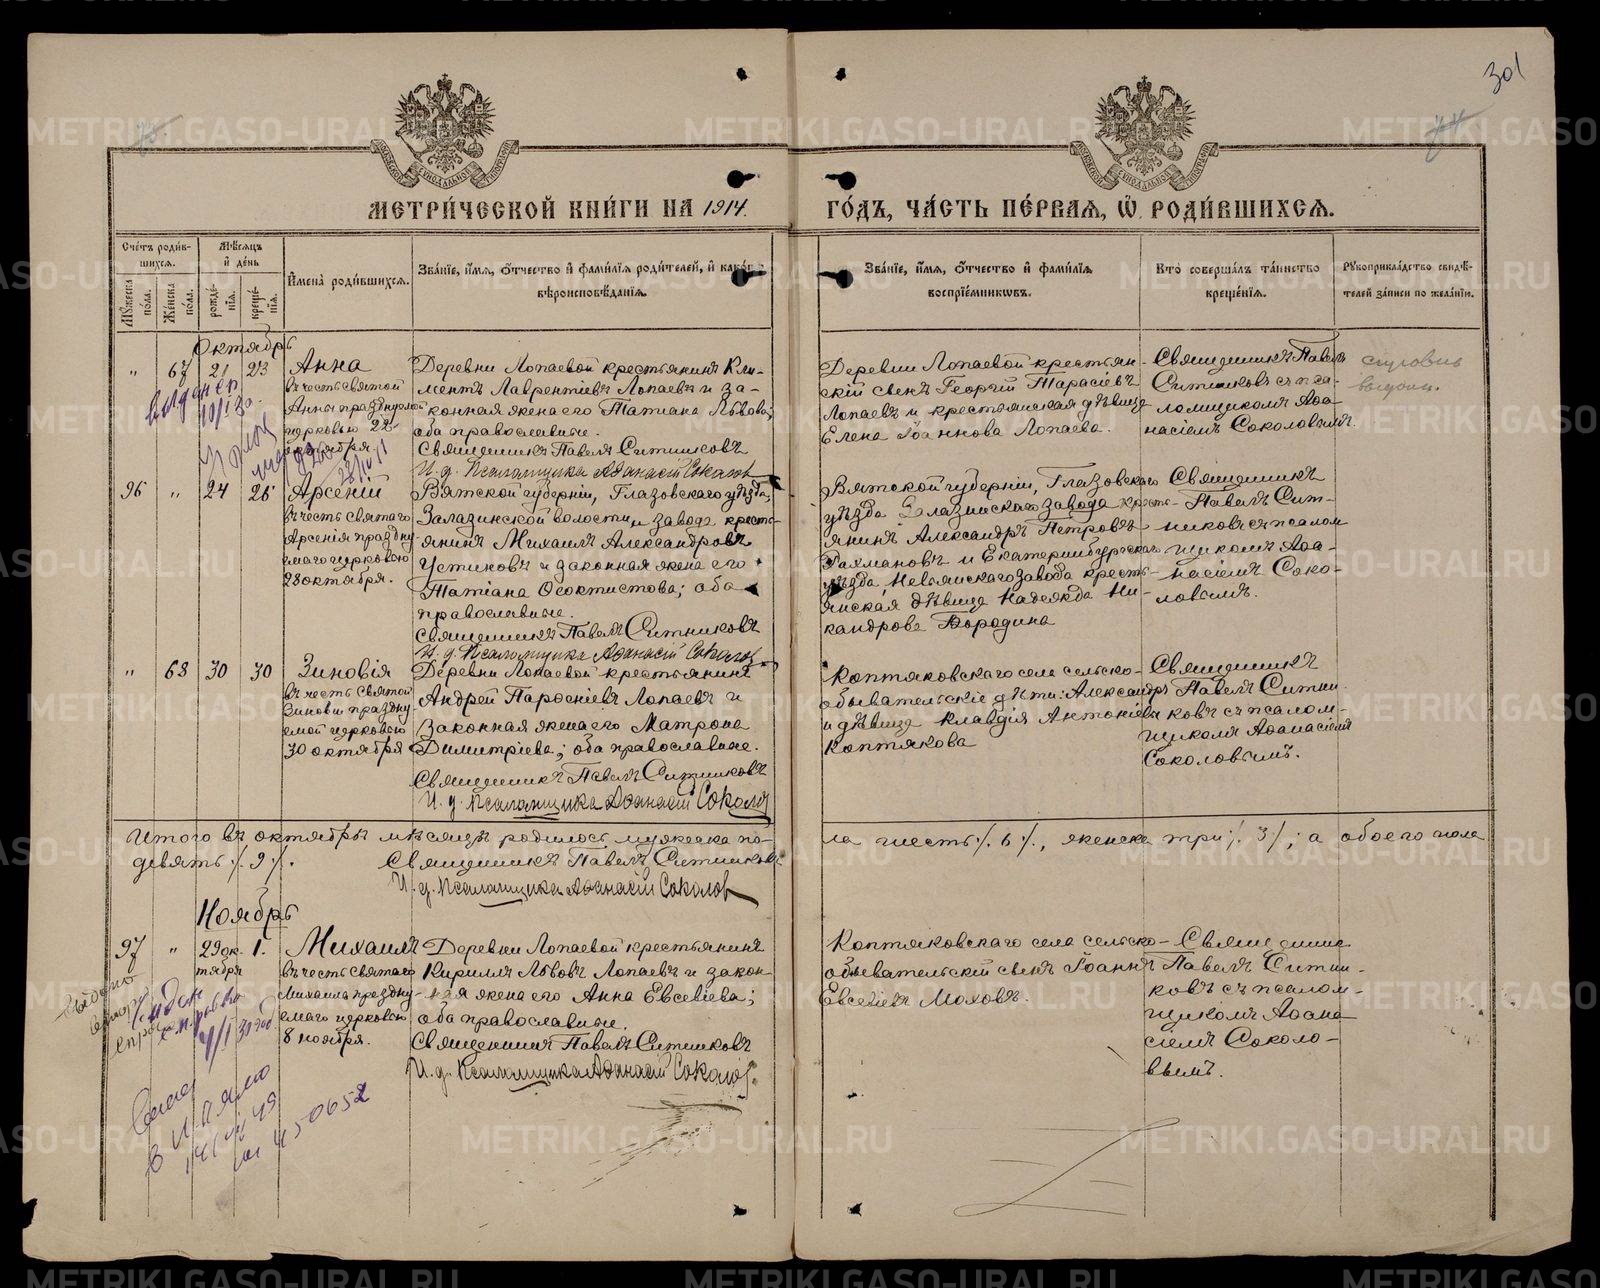 301
75.
74
МЕТРИ́ЧЕСКОЙ КНИ́ГИ НА 1914.
ГО́ДЪ, ЧА́СТЬ ПЕ́РВАЯ, Ѡ҆ РОДИ́ВШИХСѦ.
Сче́тъ роди́в-
шихсѧ.
Мꙋ́жеска по́ла.
Же́нска по́ла.
Мѣ́сѧцъ
и҆ де́нь
рожде́-
нїѧ.
креще́-
нїѧ.
И҆мена̀ роди́вшихсѧ.
Зва́нїе, и҆́мѧ, ѻ҆́тчество и҆ фами́лїѧ роди́телей, и҆ како́гѡ
вѣроисповѣ́данїѧ.
Зва́нїе, и҆́мѧ, ѻ҆́тчество и҆ фами́лїѧ
воспрїе́мникѡвъ.
Кто̀ соверша́лъ та́инство
креще́нїѧ.
Рꙋкоприкла́дство свидѣ́-
телей за́писи по жела́нїю.
Октябрь
" 67 21 23
Анна
въ честь святой
Анны празднуемой
церковью 22
октября
Деревни Лопаевой крестьянинъ Кли-
ментъ Лаврентіевъ Лопаевъ и за-
конная жена его Татіана Львова;
оба православные.
Священникъ Павелъ Ситниковъ
И. д. Псаломщика Аѳанасій Соколовъ
Деревни Лопаевой крестьян-
скій сынъ Георгій Тарасіевъ
Лопаевъ и крестьянская дѣвица
Елена Іоаннова Лопаева.
Священникъ Павелъ
Ситниковъ съ пса-
ломщикомъ Аѳа-
насіемъ Соколовымъ.
96 " 24 26
Арсеній
въ честь святаго
Арсенія праздну-
емаго церковью
28 октября.
Вятской губерніи, Глазовскаго уѣзда,
Залазинской волости и завода кресть-
янинъ Михаилъ Александровъ
Устиновъ и законная жена его
Татіана Ѳеоктистова; оба
православные
Священникъ Павелъ Ситниковъ
И. д. Псаломщика Аѳанасій Соколовъ
Вятской губерніи, Глазовскаго
уѣзда Залазинскаго завода кресть-
янинъ Александръ Петровъ
Рахмановъ и Екатеринбургскаго
уѣзда, Невьянскаго завода кресть-
янская дѣвица Надежда Ни-
кандрова Бородина
Священникъ
Павелъ Сит-
никовъ съ псалом
щикомъ Аѳа-
насіемъ Соко-
ловымъ.
" 68 30 30
Зиновія
въ честь святой
Зиновіи праздну-
емой церковью
30 октября
Деревни Лопаевой крестьянинъ
Андрей Парѳеніевъ Лопаевъ и
законная жена его Матрона
Димитріева; оба православные.
Священникъ Павелъ Ситниковъ
И. д. Псаломщика Аѳанасій Соколовъ
Коптяковскаго села сельско-
обывательскіе дѣти: Александръ
и дѣвица Клавдія Антоніевы
Коптякова
Священникъ
Павелъ Ситни
ковъ съ псалом-
щикомъ Аѳанасіемъ
Соколовымъ.
Итого въ октябрѣ мѣсяцѣ родилось мужеска по-
ла шесть ./. 6 ./., женска три ./. 3 /.; а обоего пола
девять ./. 9 ./.
Священникъ Павелъ Ситниковъ
И. д. Псаломщика Аѳанасій Соколов
Ноябрь
97 " 29 ок-
тября 1.
Михаилъ
въ честь святаго
Михаила праздну-
емаго церковью
8 ноября.
Деревни Лопаевой крестьянинъ
Кириллъ Львовъ Лопаевъ и закон-
ная жена его Анна Евсевіева;
оба православные.
Священникъ Павелъ Ситниковъ
И. д. Псаломщика Аѳанасій Соколов.
Коптяковскаго села сельско-
обывательскій сынъ Іоаннъ
Евсевіевъ Моховъ.
Священник
Павелъ Ситни-
ковъ съ псалом-
щикомъ Аѳана
сіемъ Соколо-
вымъ.
METRIKI.GASO-URAL.RU